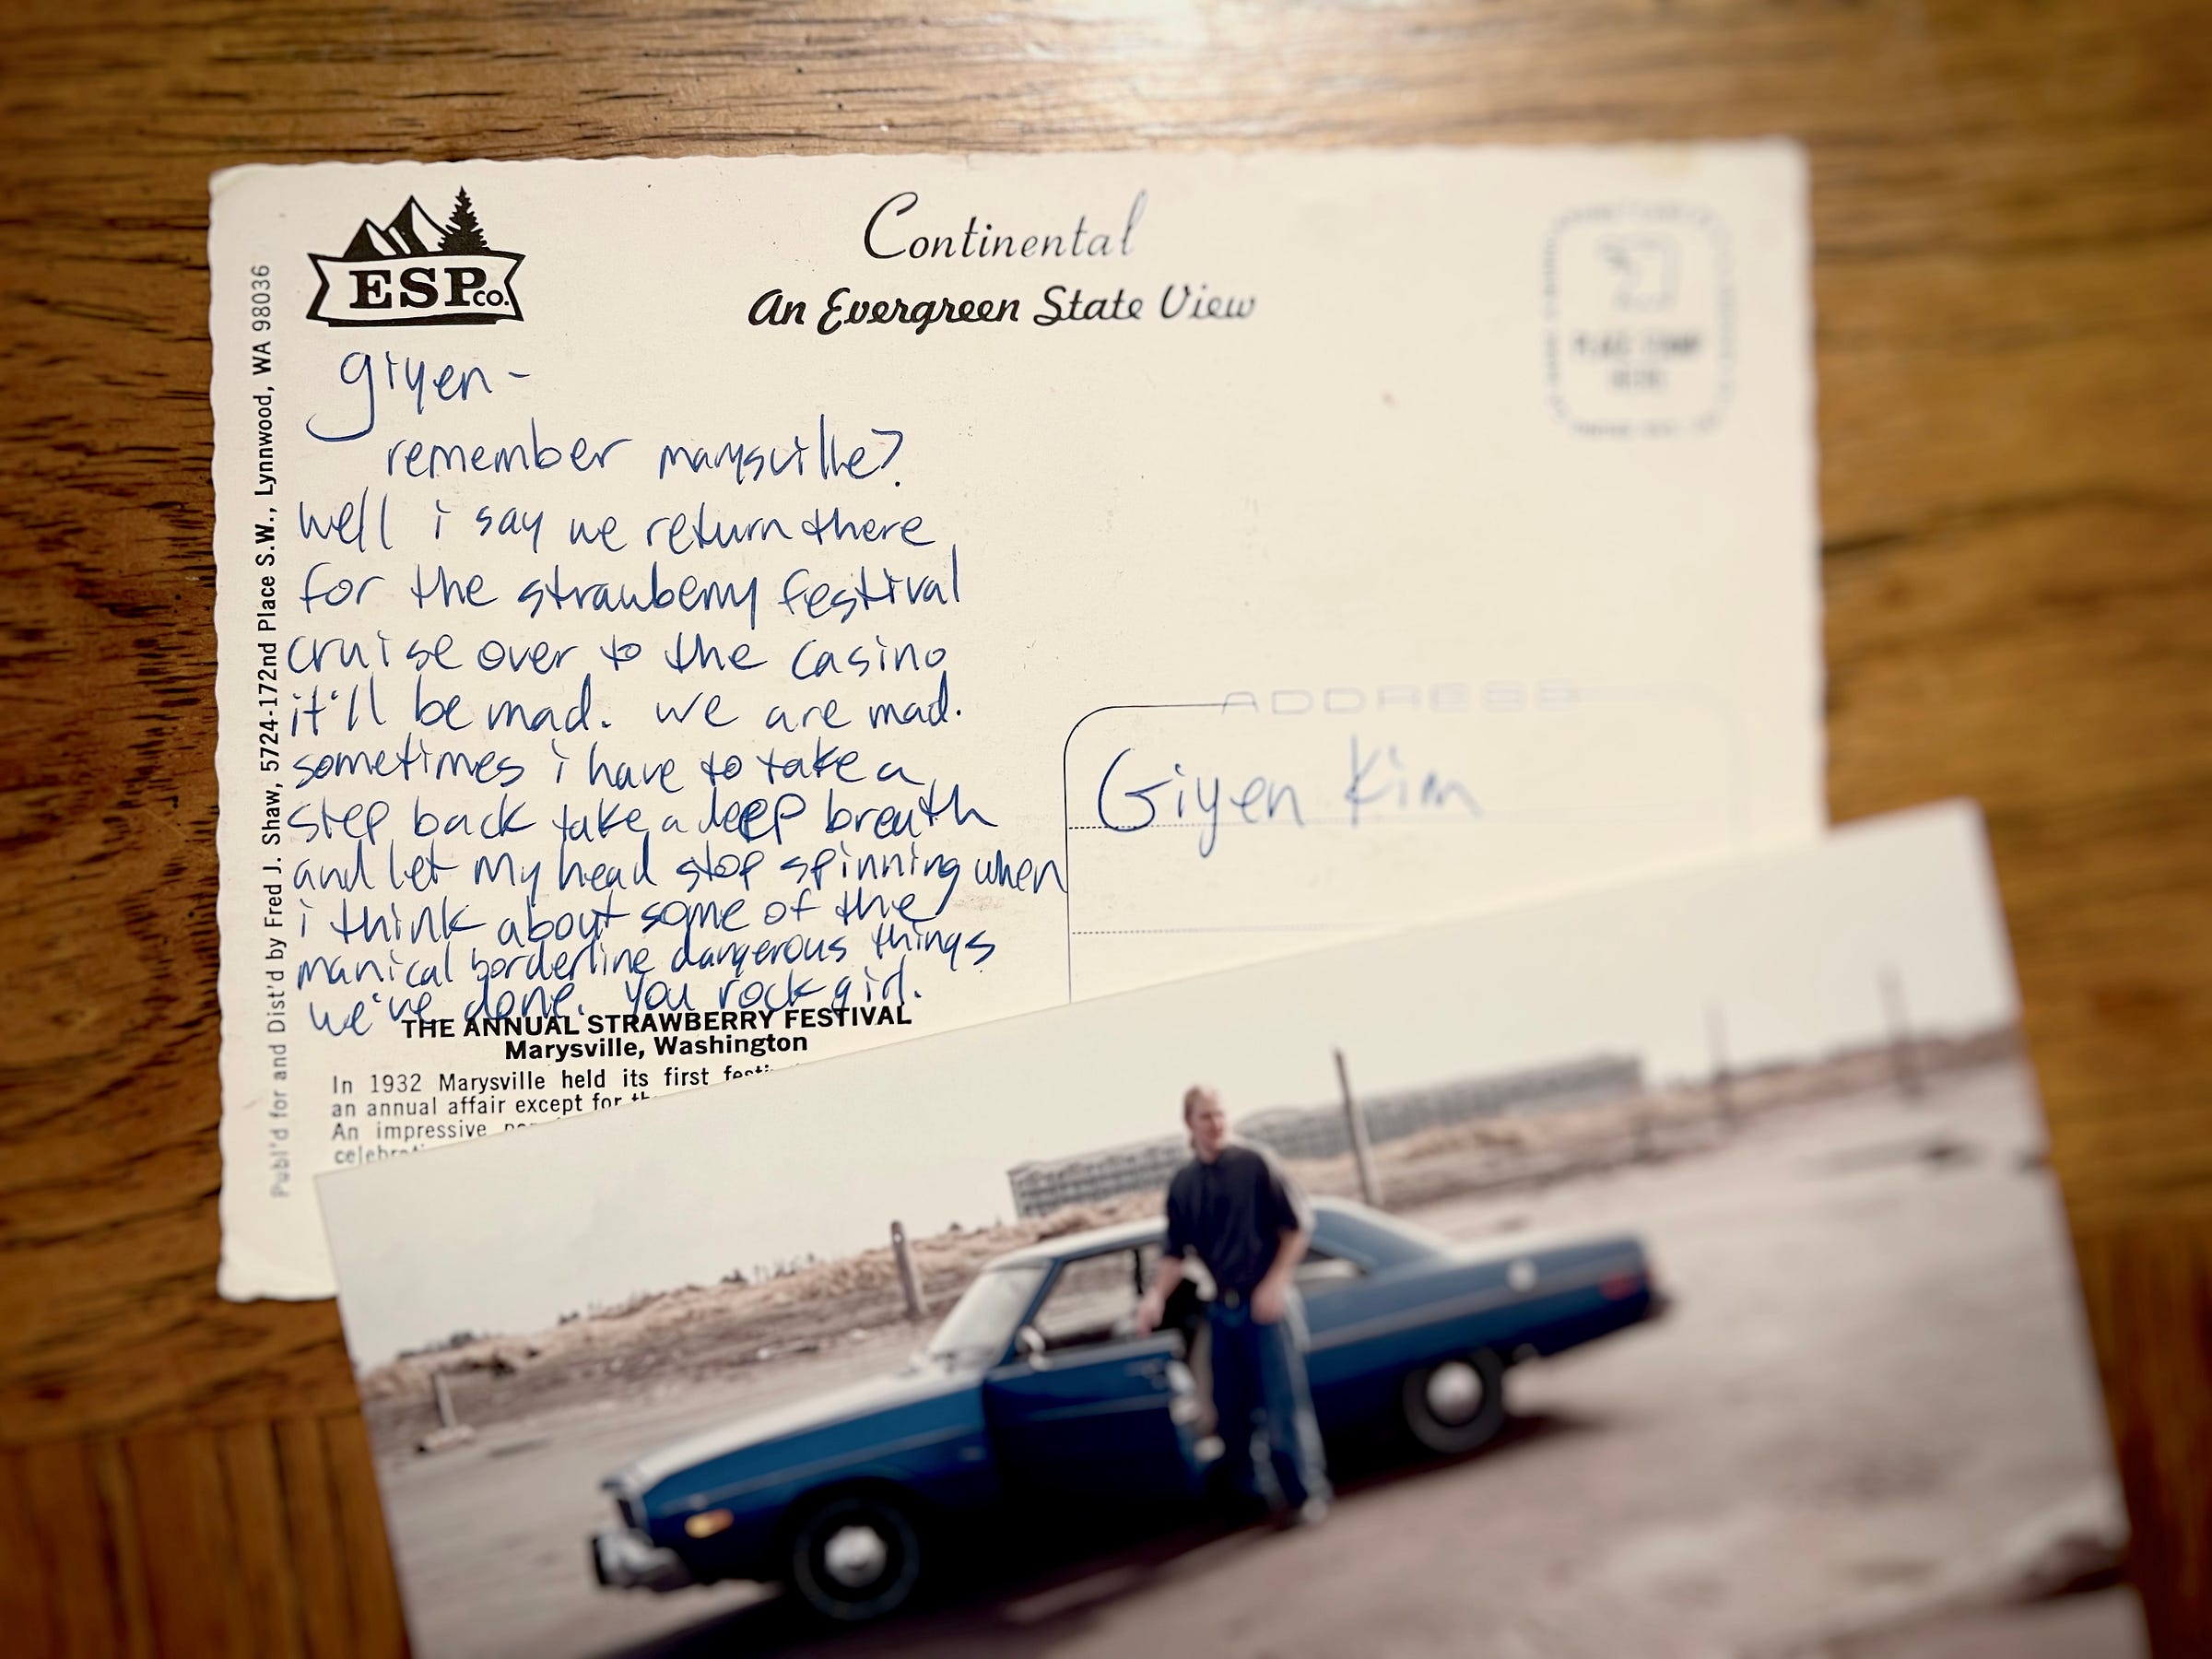 ESP CO.
Continental
An Evergreen State View
PLACE STAMP
HERE
giyen-
remember marysville?
well i say we return there
for the strawberry festival
cruise over to the casino
it'll be mad. we are mad.
sometimes i have to take a
step back take a deep breath
and let my head stop spinning when
i think about some of the
manical borderline dangerous things
we've done. you rock girl.
ADDRESS
Giyen Kim
THE ANNUAL STRAWBERRY FESTIVAL
Marysville, Washington
In 1932 Marysville held its first
an annual affair except for
An impressive
Publ'd for and Dist'd by Fred J. Shaw, 5724-172nd Place S.W., Lynnwood, WA 98036